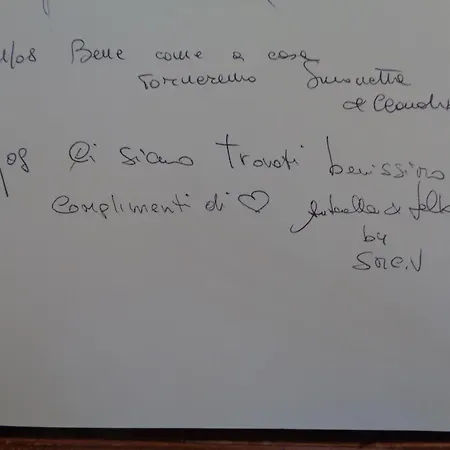 /08 Bene come a casa
torneremo Simonetta
& Claudio
/08 Ci siamo trovati benissimo
complimenti di ♡ Antonella &
by